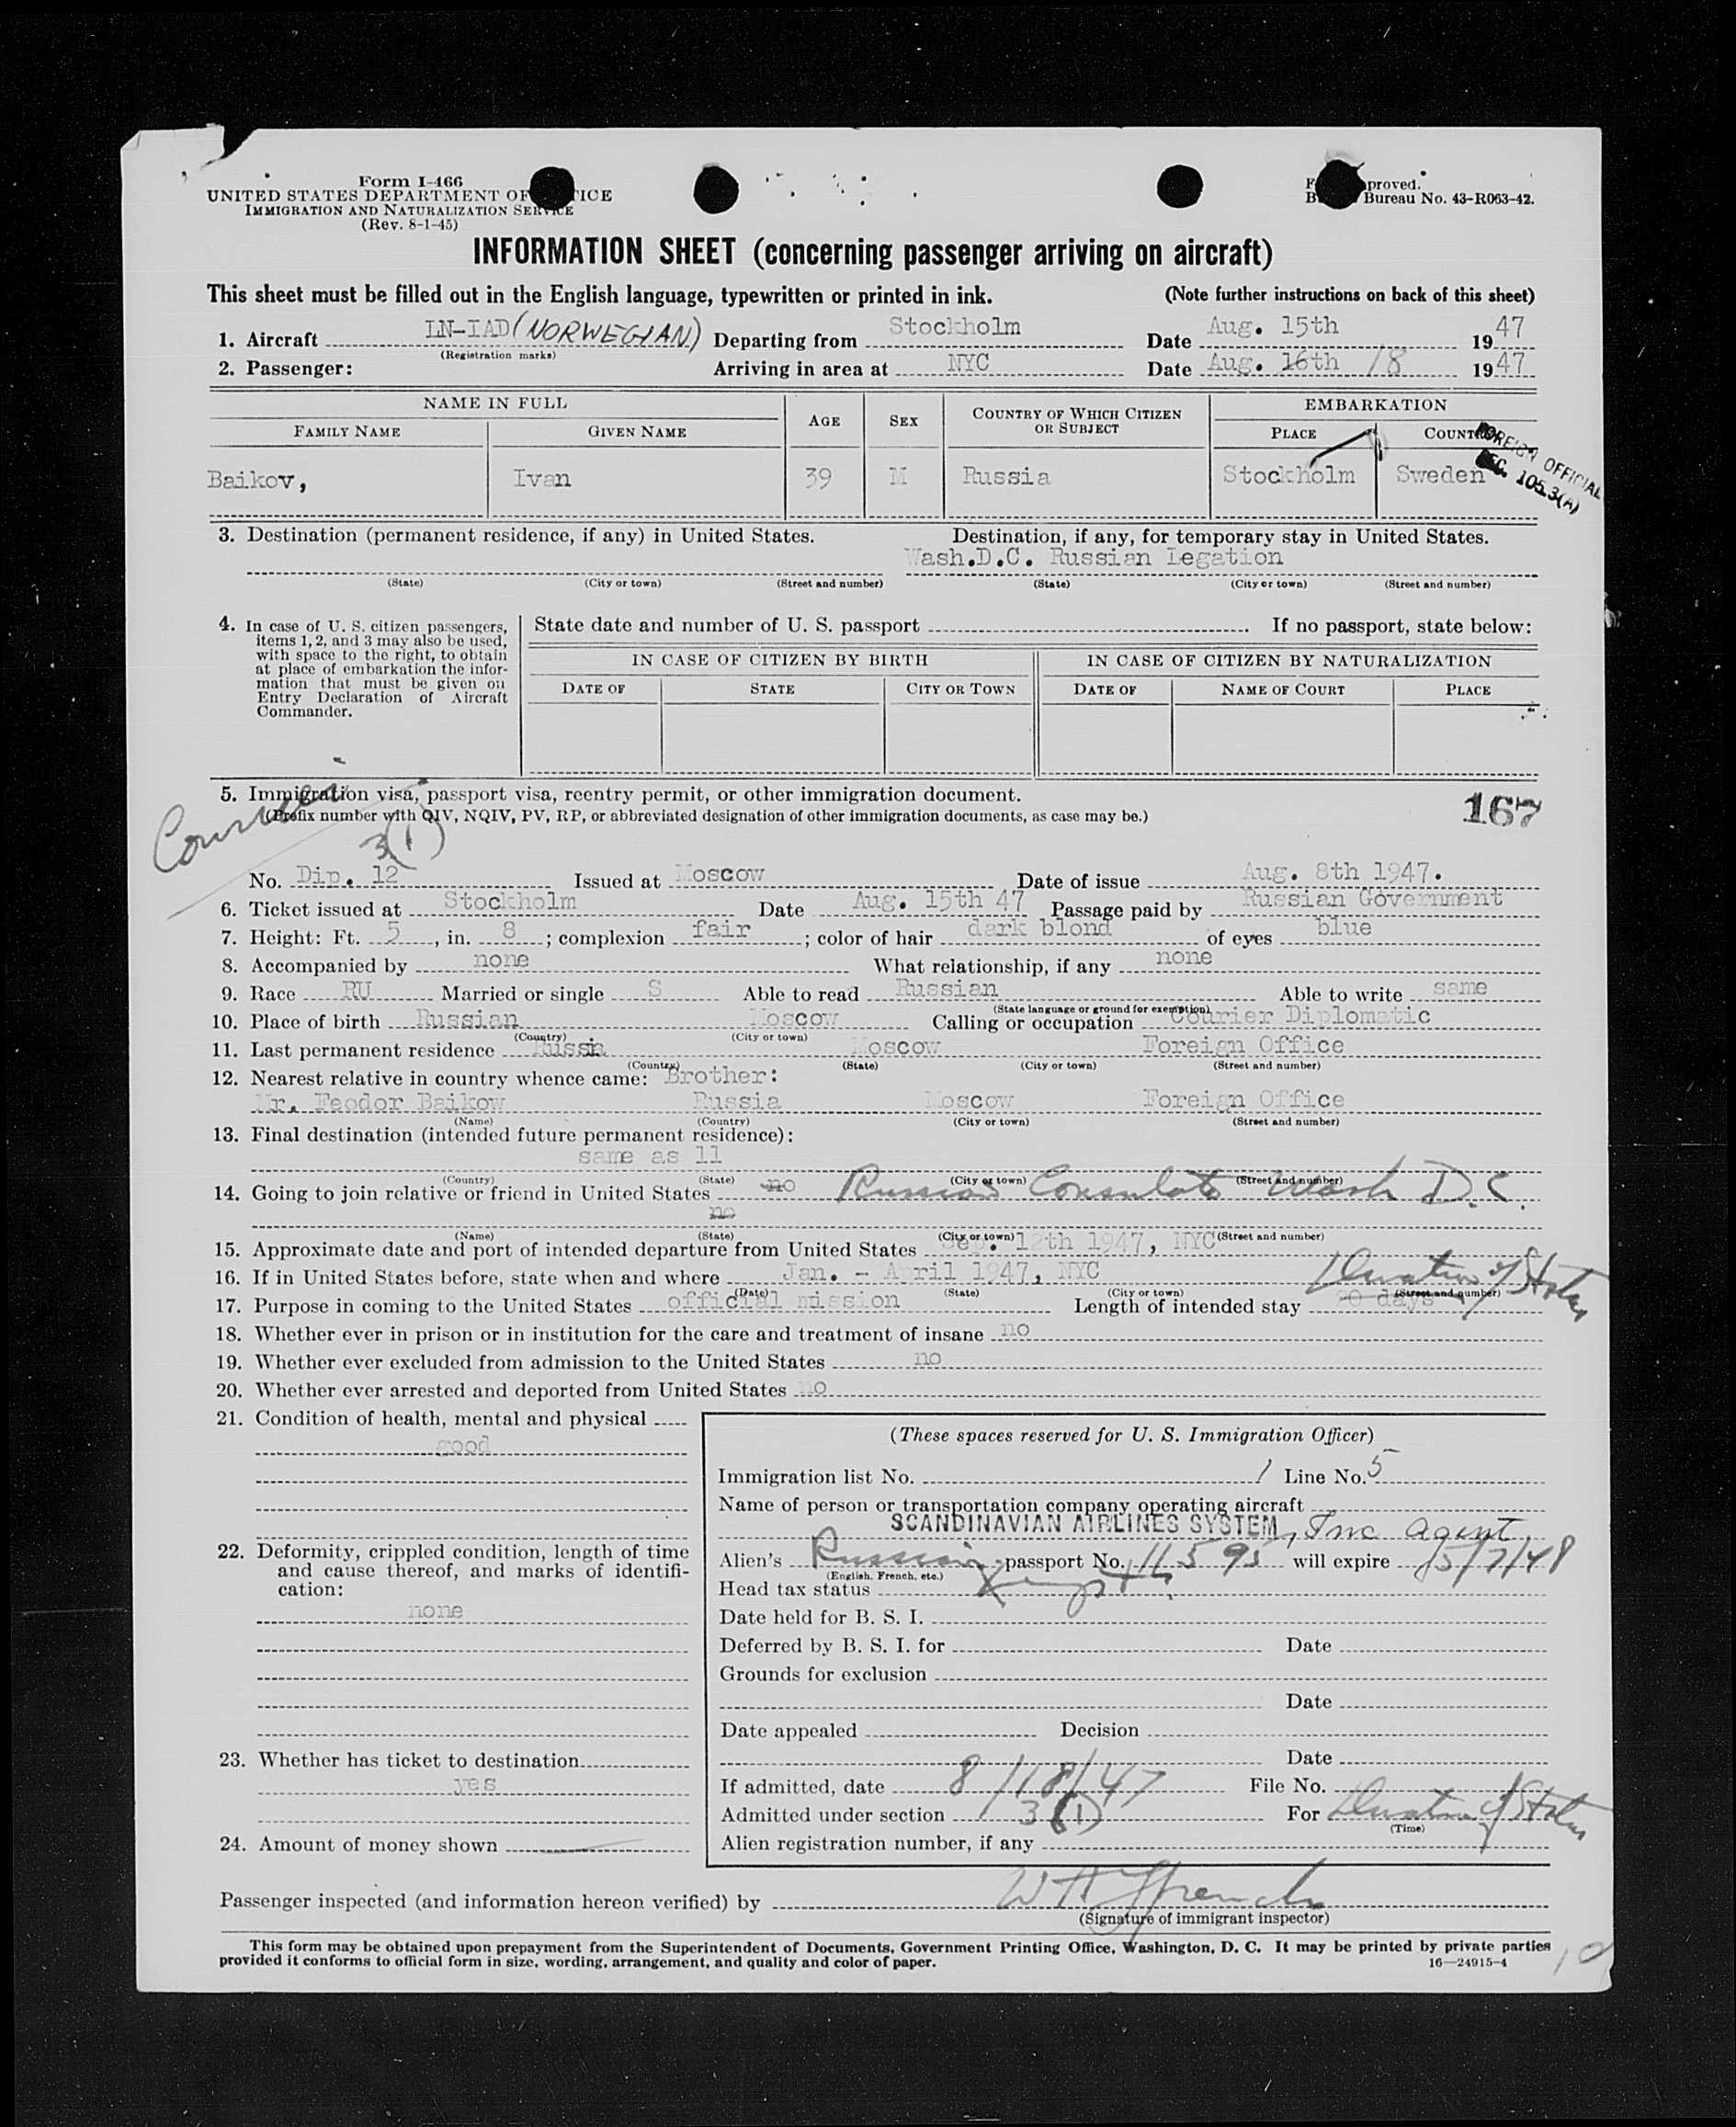 Form I-466
UNITED STATES DEPARTMENT OF ICE
IMMIGRATION AND NATURALIZATION SERVICE
(Rev. 8-1-45)
proved.
Bureau No. 43-R063-42.
INFORMATION SHEET (concerning passenger arriving on aircraft)
This sheet must be filled out in the English language, typewritten or printed in ink. (Note further instructions on back of this sheet)
1. Aircraft LN-IAD (NORWEGIAN) Departing from Stockholm Date Aug. 15th 1947
(Registration marks)
2. Passenger: Arriving in area at NYC Date Aug. 16th /8 1947
NAME IN FULL AGE SEX COUNTRY OF WHICH CITIZEN OR SUBJECT EMBARKATION
FAMILY NAME GIVEN NAME PLACE COUNTRY
FOREIGN OFFICIAL
SEC. 105.3(A)
Baikov, Ivan 39 M Russia Stockholm Sweden
3. Destination (permanent residence, if any) in United States. Destination, if any, for temporary stay in United States.
Wash.D.C. Russian Legation
(State) (City or town) (Street and number) (State) (City or town) (Street and number)
4. In case of U. S. citizen passengers, items 1, 2, and 3 may also be used, with space to the right, to obtain at place of embarkation the information that must be given on Entry Declaration of Aircraft Commander.
State date and number of U. S. passport If no passport, state below:
IN CASE OF CITIZEN BY BIRTH IN CASE OF CITIZEN BY NATURALIZATION
DATE OF STATE CITY OR TOWN DATE OF NAME OF COURT PLACE
5. Immigration visa, passport visa, reentry permit, or other immigration document.
(Prefix number with QIV, NQIV, PV, RP, or abbreviated designation of other immigration documents, as case may be.)
167
Courier
3(1)
No. Dip. 12 Issued at Moscow Date of issue Aug. 8th 1947.
6. Ticket issued at Stockholm Date Aug. 15th 47 Passage paid by Russian Government
7. Height: Ft. 5, in. 8; complexion fair; color of hair dark blond of eyes blue
8. Accompanied by none What relationship, if any none
9. Race RU Married or single S Able to read Russian Able to write same
(State language or ground for exemption)
10. Place of birth Russian Moscow Calling or occupation Courier Diplomatic
(Country) (City or town)
11. Last permanent residence Russia Moscow Foreign Office
(Country) (State) (City or town) (Street and number)
12. Nearest relative in country whence came: Brother:
Mr. Feodor Baikow Russia Moscow Foreign Office
(Name) (Country) (City or town) (Street and number)
13. Final destination (intended future permanent residence):
same as 11
(Country) (State) (City or town) (Street and number)
14. Going to join relative or friend in United States no Russian Consulate Wash D.C.
no
(Name) (State) (City or town) (Street and number)
15. Approximate date and port of intended departure from United States Sep. 12th 1947, NYC
16. If in United States before, state when and where Jan. - April 1947, NYC
(Date) (State) (City or town) (Street and number)
Duration of Status
17. Purpose in coming to the United States official mission Length of intended stay days
18. Whether ever in prison or in institution for the care and treatment of insane no
19. Whether ever excluded from admission to the United States no
20. Whether ever arrested and deported from United States no
21. Condition of health, mental and physical
good
22. Deformity, crippled condition, length of time and cause thereof, and marks of identification:
none
23. Whether has ticket to destination
yes
24. Amount of money shown
(These spaces reserved for U. S. Immigration Officer)
Immigration list No. 1 Line No. 5
Name of person or transportation company operating aircraft
SCANDINAVIAN AIRLINES SYSTEM, Inc Agent.
Alien's Russian passport No. 11595 will expire 5/7/48
(English, French, etc.)
Head tax status Exempt
Date held for B. S. I.
Deferred by B. S. I. for Date
Grounds for exclusion
Date
Date appealed Decision
Date
If admitted, date 8/18/47 File No.
Admitted under section 3(1) For Duration of Status
(Time)
Alien registration number, if any
Passenger inspected (and information hereon verified) by W A Ffrench
(Signature of immigrant inspector)
This form may be obtained upon prepayment from the Superintendent of Documents, Government Printing Office, Washington, D. C. It may be printed by private parties
provided it conforms to official form in size, wording, arrangement, and quality and color of paper. 16—24915-4